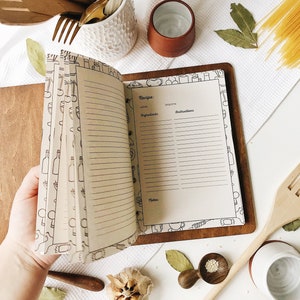 Recipe
Ingredients Instructions
Notes